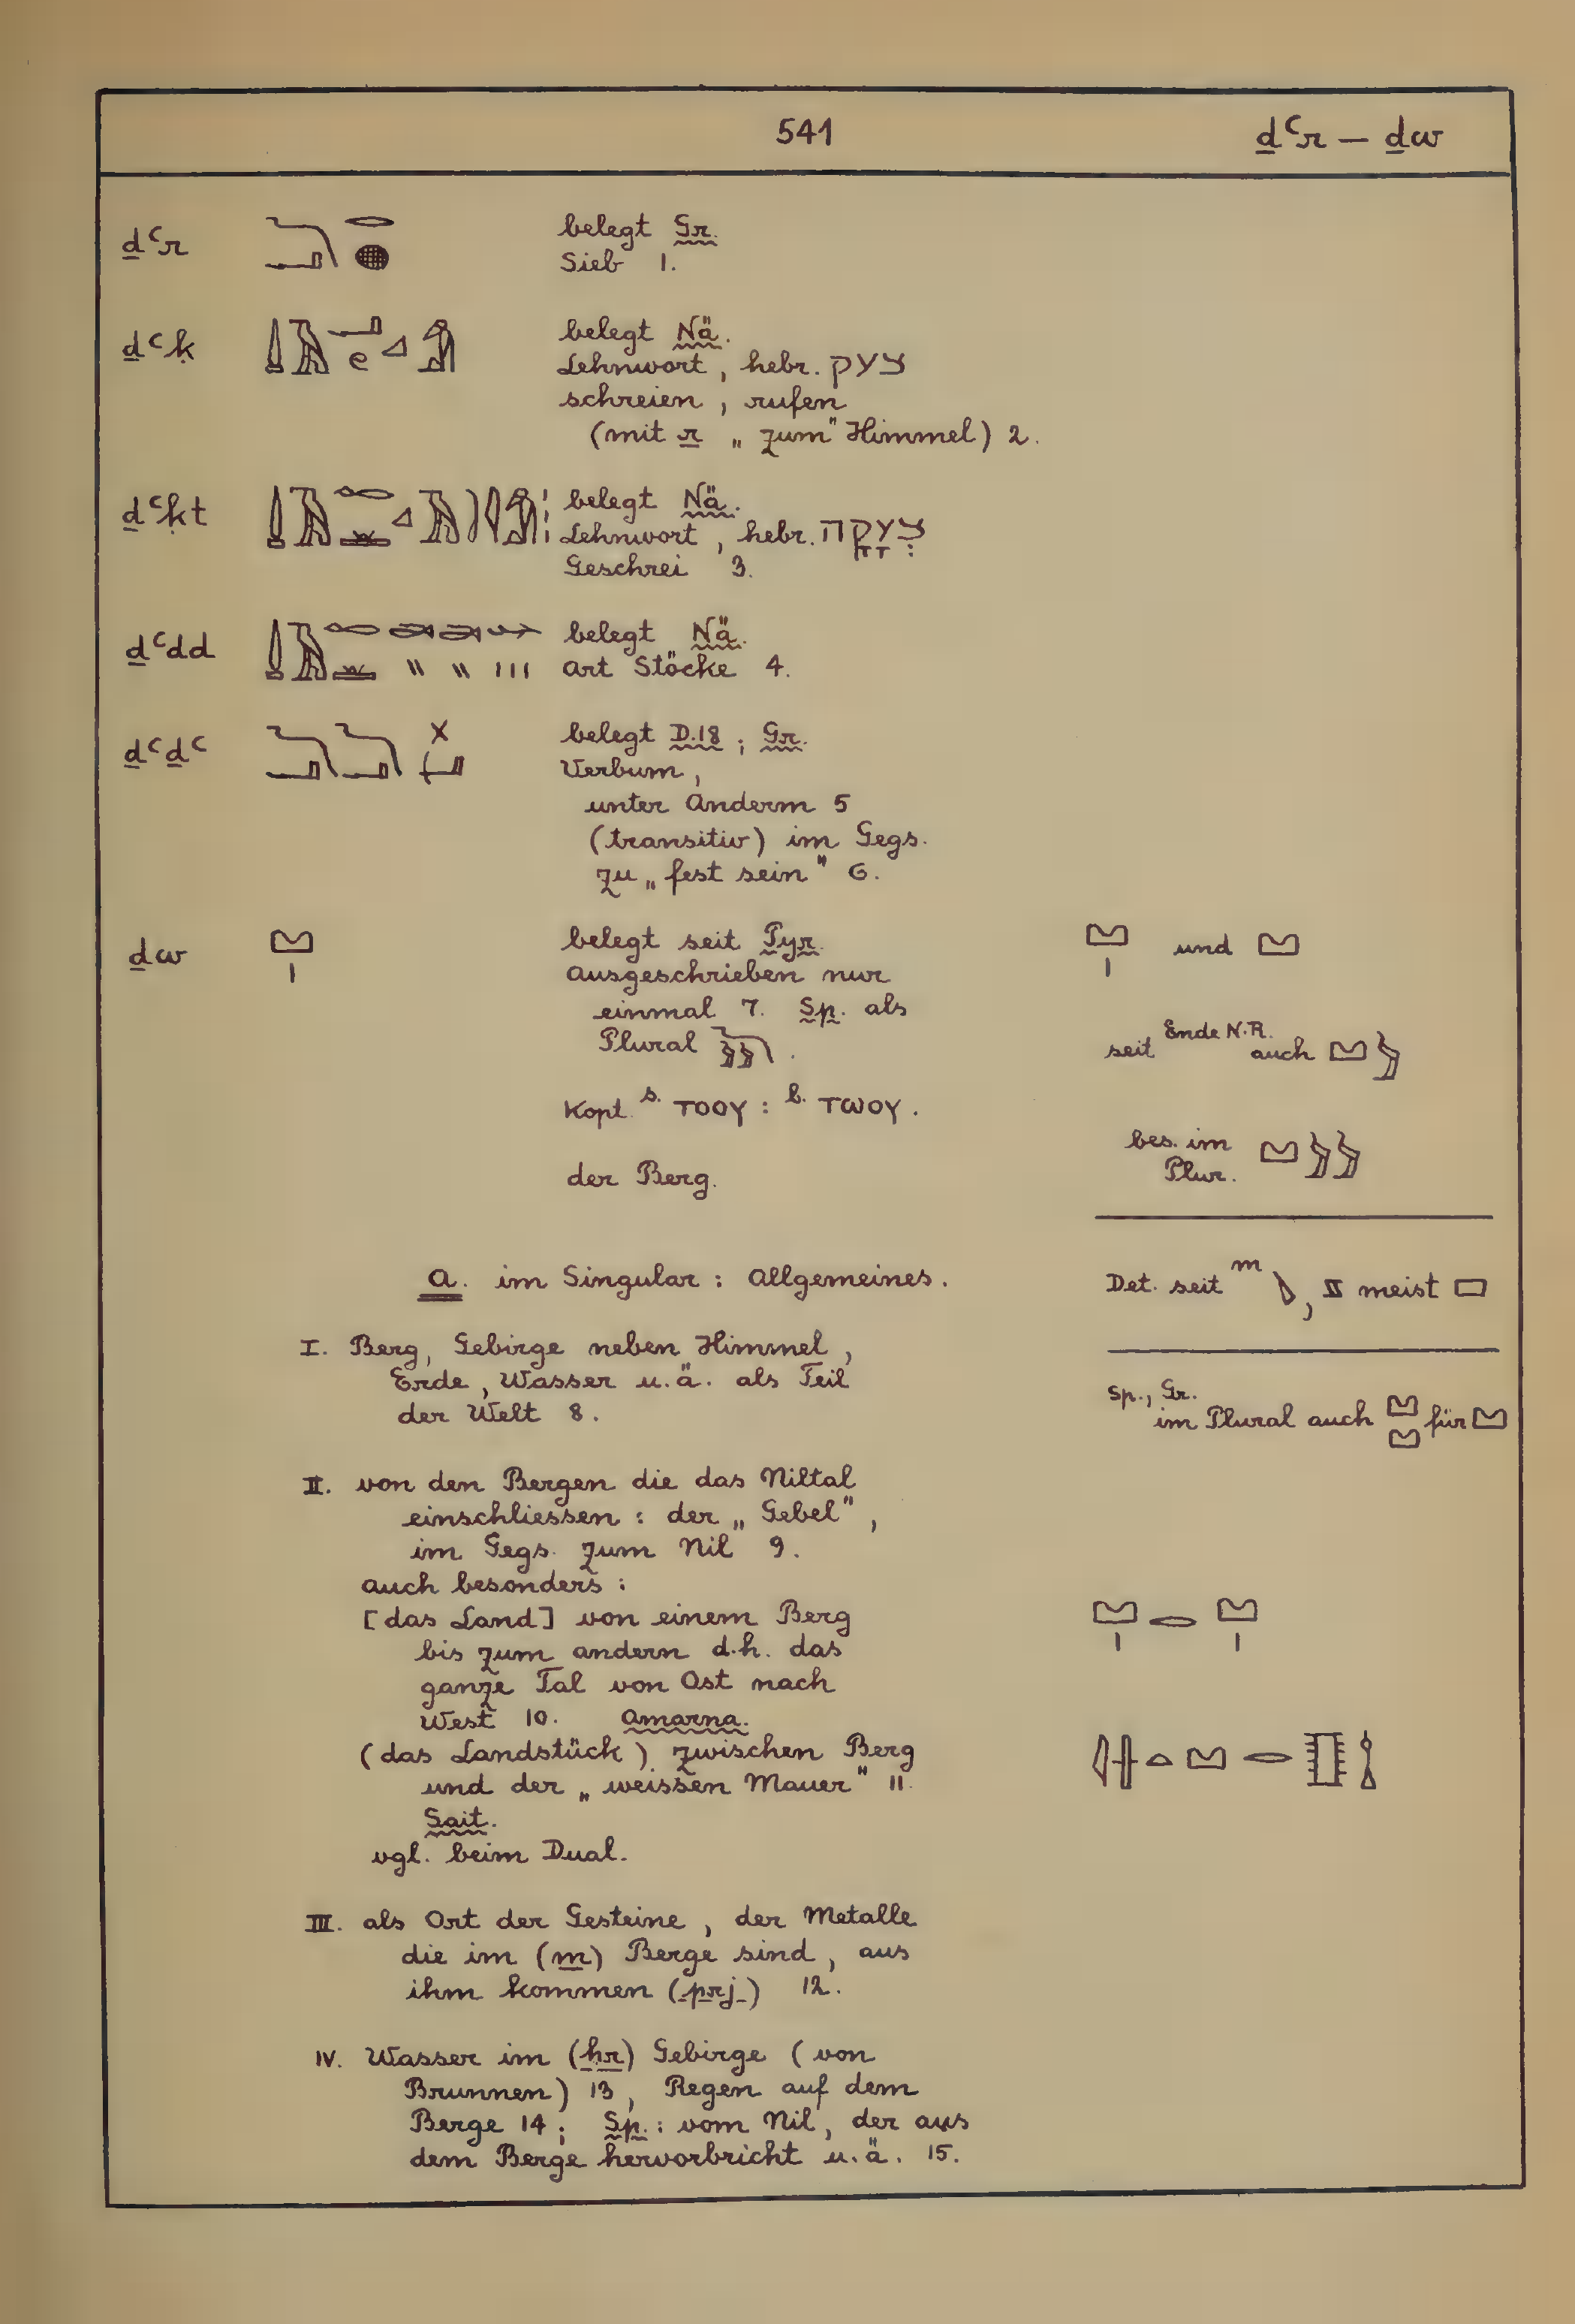 541 ḏꜥr — ḏw
ḏꜥr belegt Gr.
Sieb 1.
ḏꜥḳ belegt Nä.
Lehnwort, hebr. צעק
schreien, rufen
(mit r „zum" Himmel) 2.
ḏꜥḳt belegt Nä.
Lehnwort, hebr. צְעָקָה
Geschrei 3.
ḏꜥdd belegt Nä.
Art Stöcke 4.
ḏꜥḏꜥ belegt D.18; Gr.
Verbum,
unter Anderm 5
(transitiv) im Gegs.
zu „fest sein" 6.
ḏw belegt seit Pyr.
ausgeschrieben nur
einmal 7. Sp. als
Plural
Kopt. s. ⲧⲟⲟⲩ : b. ⲧⲱⲟⲩ.
der Berg.
und
seit Ende N.R. auch
bes. im
Plur.
Det. seit meist
Sp., Gr.
im Plural auch für
a. im Singular: Allgemeines.
I. Berg, Gebirge neben Himmel,
Erde, Wasser u.ä. als Teil
der Welt 8.
II. von den Bergen die das Niltal
einschliessen: der „Gebel",
im Gegs. zum Nil 9.
auch besonders:
[das Land] von einem Berg
bis zum andern d.h. das
ganze Tal von Ost nach
West 10. Amarna.
(das Landstück) zwischen Berg
und der „weissen Mauer" 11.
Sait.
vgl. beim Dual.
III. als Ort der Gesteine, der Metalle
die im (m) Berge sind, aus
ihm kommen (prj) 12.
IV. Wasser im (ḥr) Gebirge (von
Brunnen) 13, Regen auf dem
Berge 14; Sp.: vom Nil, der aus
dem Berge hervorbricht u.ä. 15.